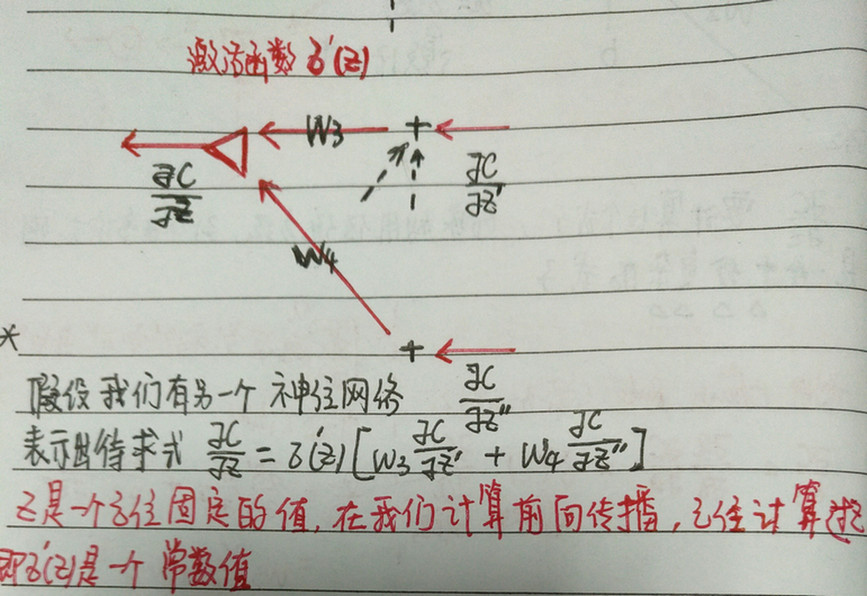 激活函数 σ'(z)
W3
∂C/∂z
∂C/∂z'
W4
∂C/∂z''
假设我们有另一个神经网络
表示出待求式 ∂C/∂z = σ'(z) [W3 ∂C/∂z' + W4 ∂C/∂z'']
z是一个已经固定的值,在我们计算前向传播,已经计算过
即σ'(z)是一个常数值